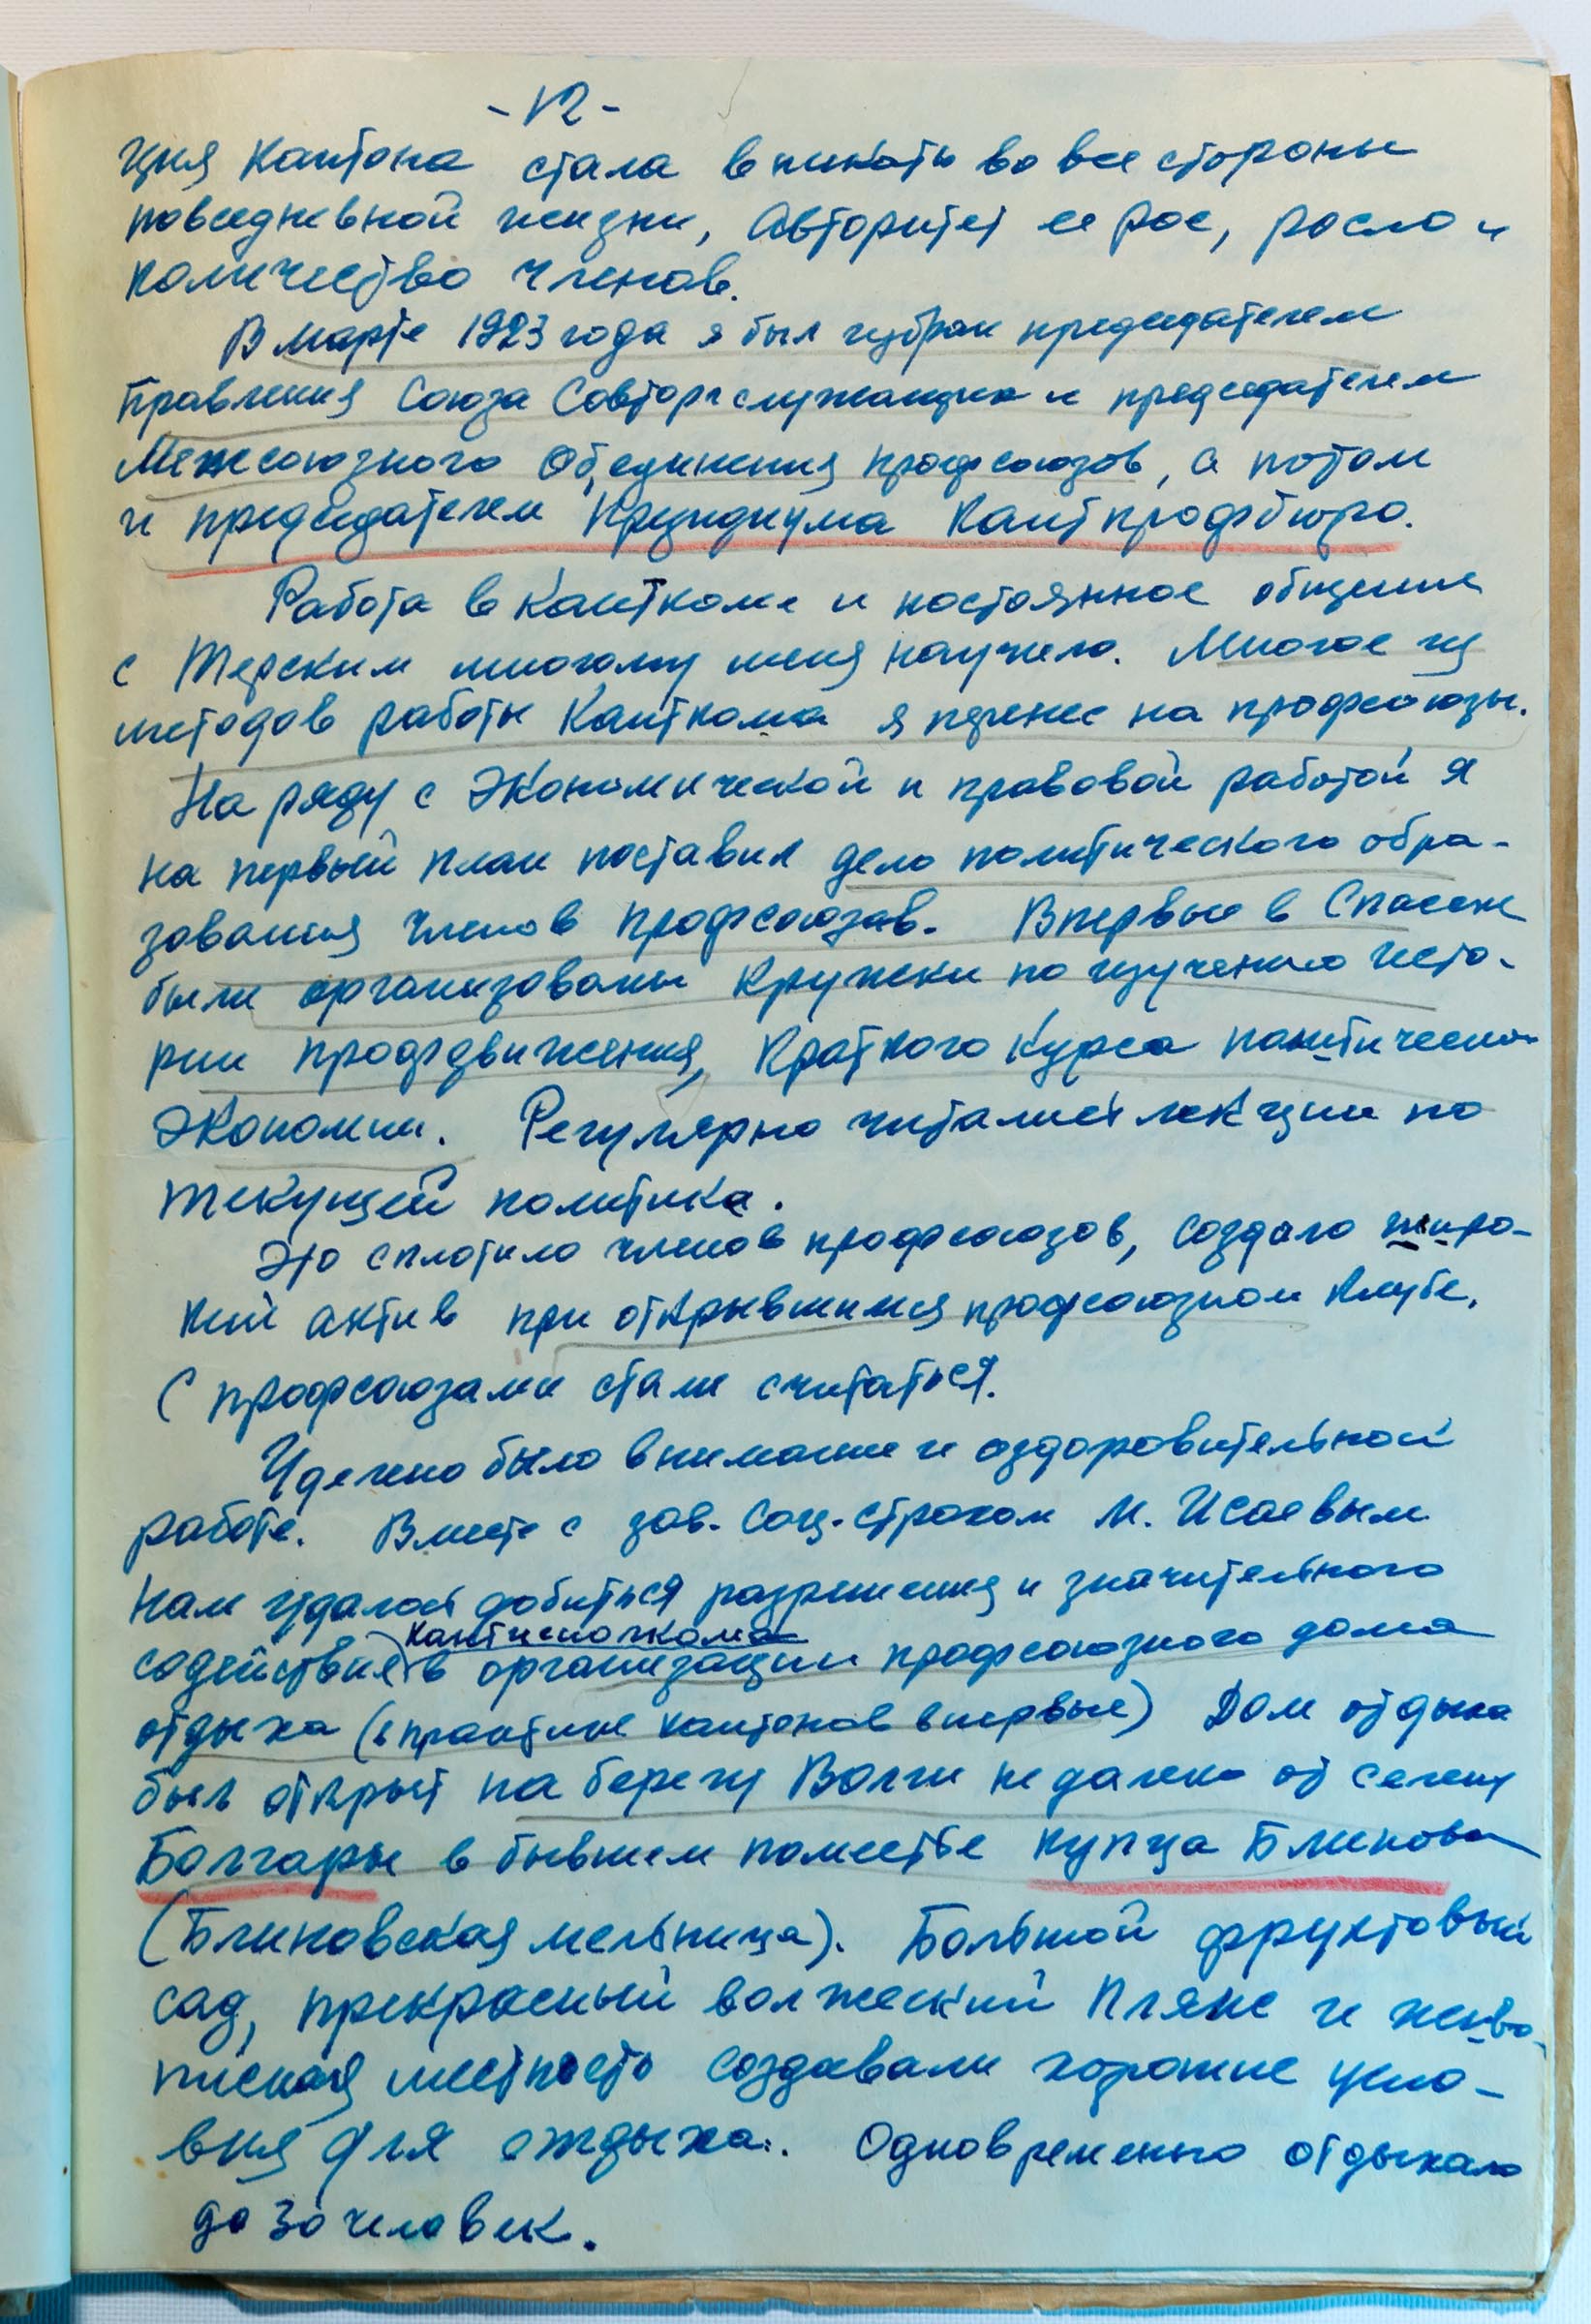 - 12 -
ция Кантона стала вникать во все стороны
повседневной жизни, Авторитет ее рос, росло и
количество членов.
В марте 1923 года я был избран председателем
Правления Союза Совторгслужащих и председателем
Межсоюзного Объединения профсоюзов, а потом
и председателем Президиума Кантпрофбюро.
Работа в Канткоме и постоянное общение
с Терским многому меня научило. Многое из
методов работы Канткома я перенес на профсоюзы.
На ряду с Экономической и правовой работой я
на первый план поставил дело политического обра-
зования членов профсоюзов. Впервые в Спасске
были организованы кружки по изучению исто-
рии профдвижения, Краткого Курса политической
Экономии. Регулярно читались лекции по
текущей политике.
Это сплотило членов профсоюзов, создало широ-
кий актив при открывшимся профсоюзном клубе.
С профсоюзами стали считаться.
Уделено было внимание и оздоровительной
работе. Вместе с зав. Соц. страхом М. Исаевым
нам удалось добиться разрешения и значительного
Кантисполкома
содействия в организации профсоюзного дома
отдыха (в практике кантонов впервые) Дом отдыха
был открыт на берегу Волги не далеко от селения
Болгары в бывшем поместье купца Блинова
(Блиновская мельница). Большой фруктовый
сад, прекрасный волжский пляж и живо-
писная местность создавали хорошие усло-
вия для отдыха. Одновременно отдыхало
до 30 человек.